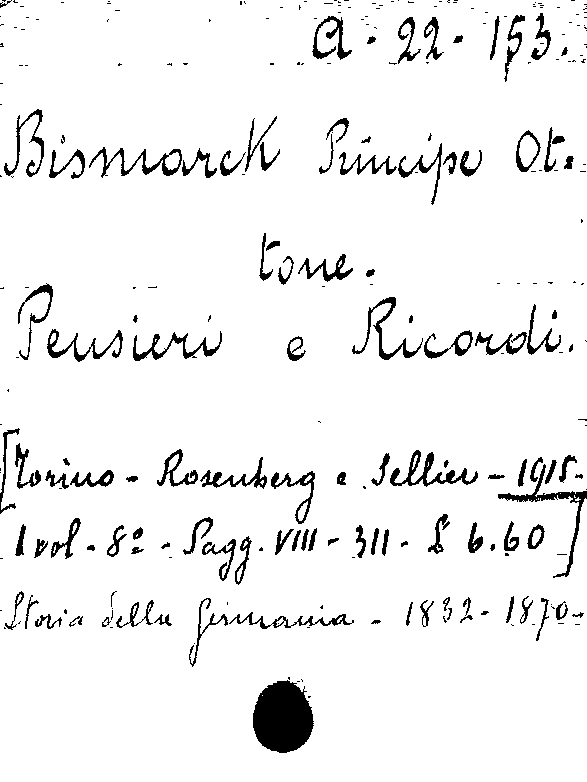 A. 22. 153.
Bismarck Principe Ot=
tone.
Pensieri e Ricordi.
[Torino - Rosenberg e Sellier - 1915 -
1 vol - 8º - Pagg. VIII - 311 - £ 6.60]
Storia della Germania - 1832 - 1870 -